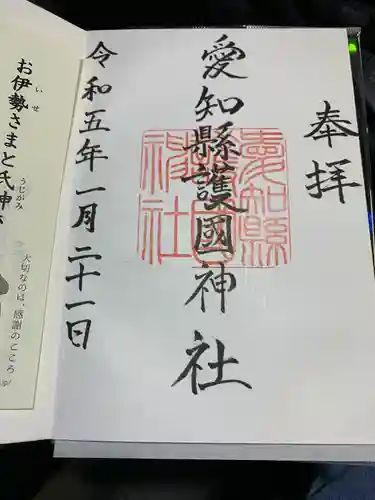 奉拝
愛知縣護國神社
愛知縣
神社
令和五年一月二十一日
お伊勢さまと氏神
いせ
うじがみ
大切なのは、感謝のこころ